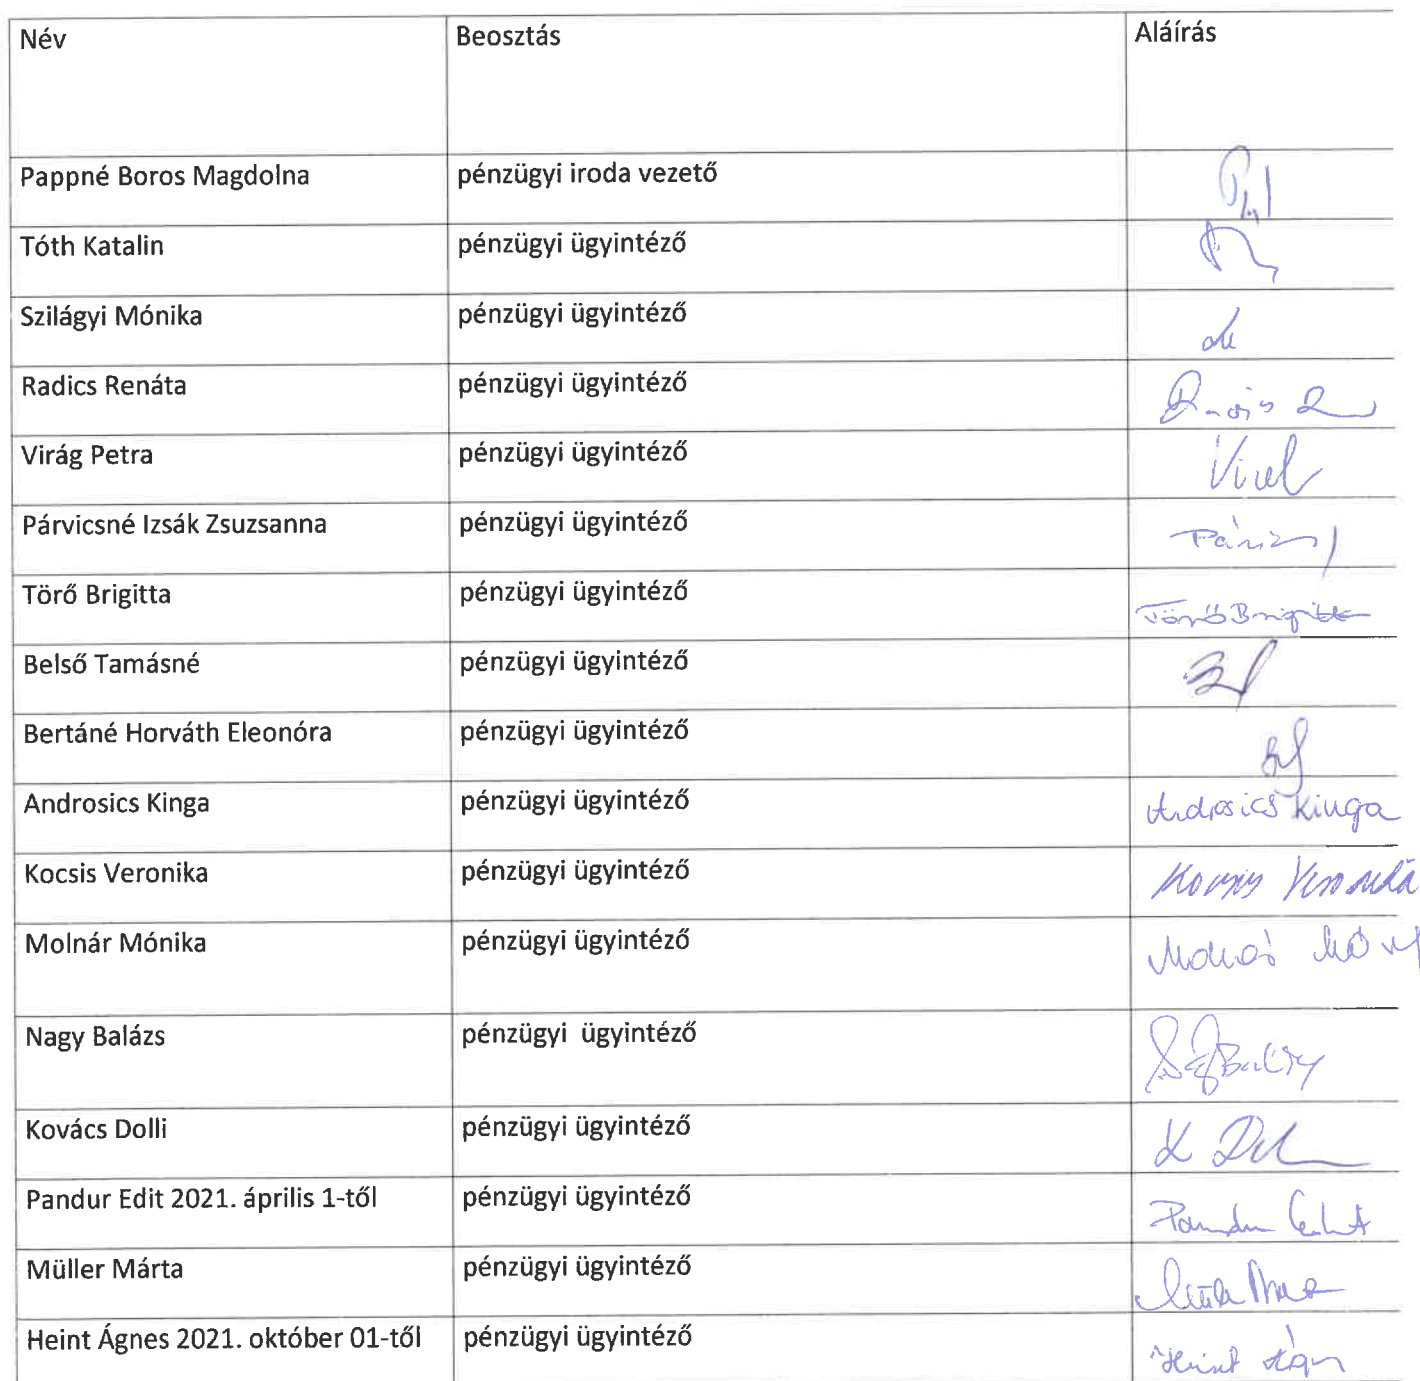 Név Beosztás Aláírás
Pappné Boros Magdolna pénzügyi iroda vezető
Tóth Katalin pénzügyi ügyintéző
Szilágyi Mónika pénzügyi ügyintéző
Radics Renáta pénzügyi ügyintéző
Virág Petra pénzügyi ügyintéző
Párvicsné Izsák Zsuzsanna pénzügyi ügyintéző
Törő Brigitta pénzügyi ügyintéző Törő Brigitta
Belső Tamásné pénzügyi ügyintéző
Bertáné Horváth Eleonóra pénzügyi ügyintéző
Androsics Kinga pénzügyi ügyintéző Androsics Kinga
Kocsis Veronika pénzügyi ügyintéző Kocsis Veronika
Molnár Mónika pénzügyi ügyintéző
Nagy Balázs pénzügyi ügyintéző
Kovács Dolli pénzügyi ügyintéző
Pandur Edit 2021. április 1-től pénzügyi ügyintéző Pandur Edit
Müller Márta pénzügyi ügyintéző
Heint Ágnes 2021. október 01-től pénzügyi ügyintéző Heint